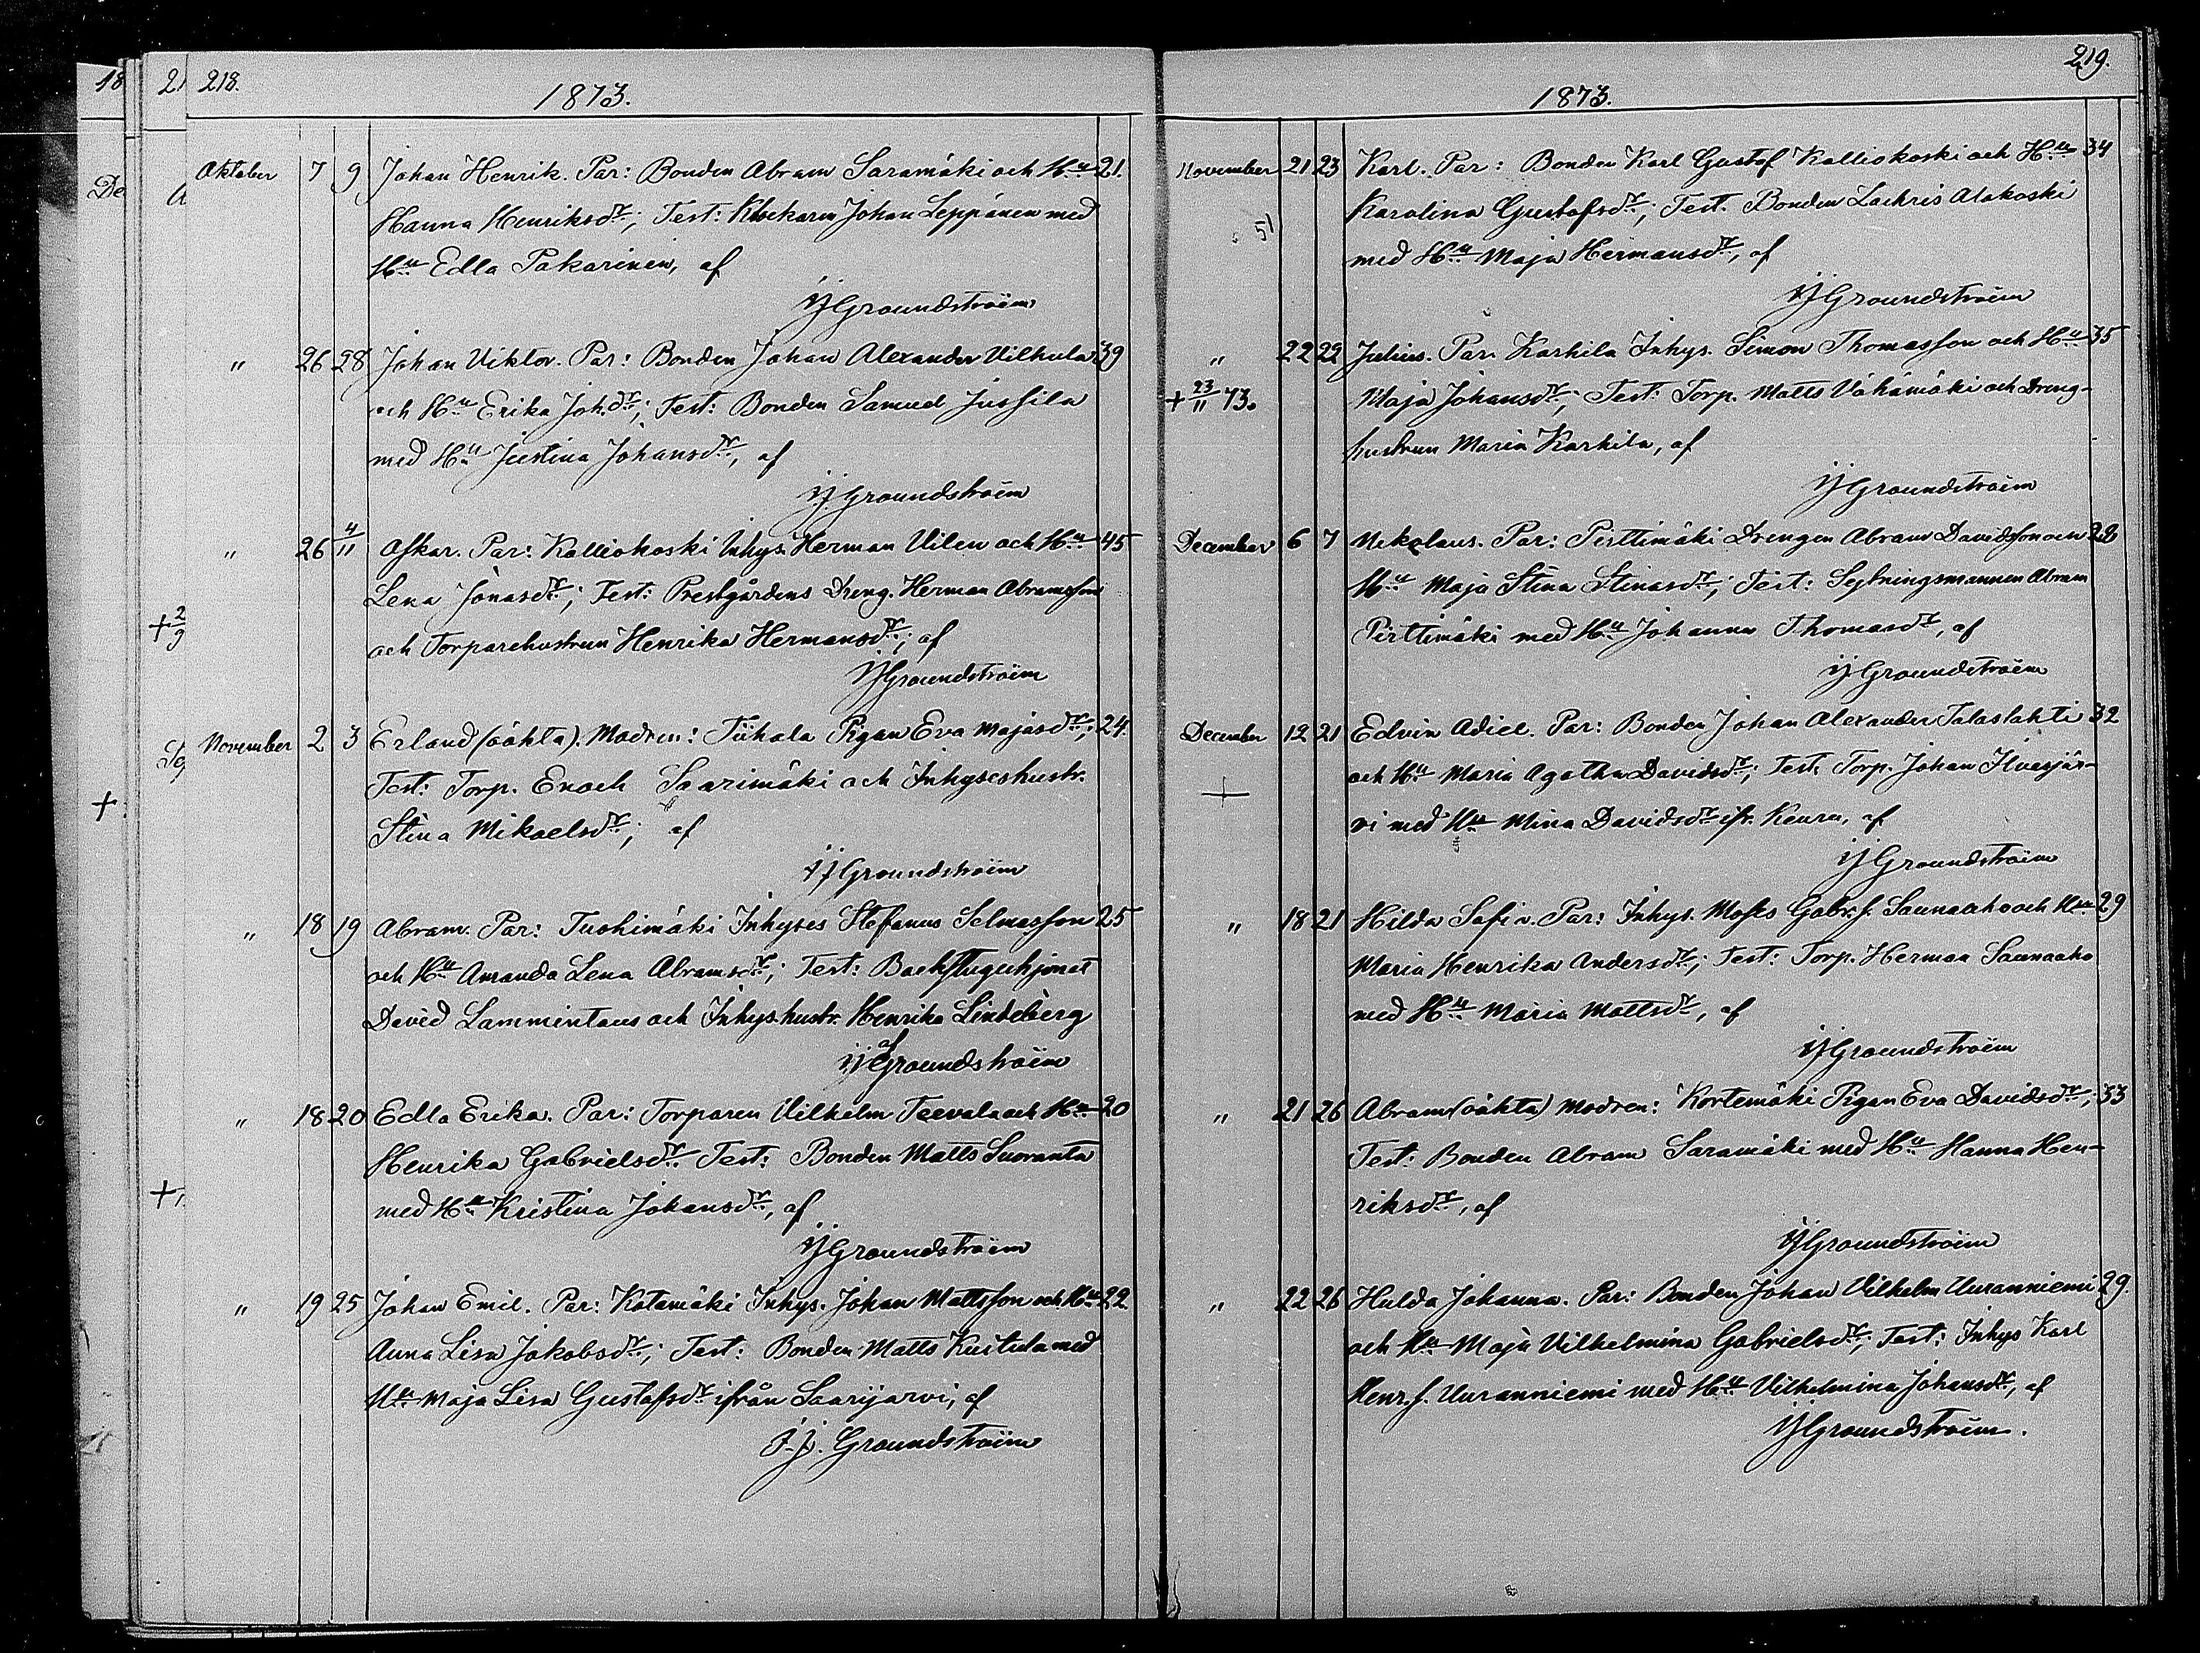 218.
1873.
Oktober 7 9 Johan Henrik. Par: Bonden Abram Saramäki och Hu 21.
Hanna Henriksdr; Test: Klockaren Johan Leppänen med
Hu Edla Pakarinen, af
JJGroundstroëm
" 26 28 Johan Viktor. Par: Bonden Johan Alexander Vilhula 39
och Hu Erika Joh.dr; Test: Bonden Samuel Jussila
med Hu Justina Johansdr, af
JJ.Groundstroëm
" 26 4/11 Oskar. Par: Kalliokoski Inhys. Herman Vilen och Hu 45
Lena Jonasdr; Test: Prestgårdens Dreng. Herman Abramsson
och Torparehustrun Henrika Hermansdr; af
JJGroundström
November 2 3 Erland (oäkta). Modren: Tiihala Pigan Eva Majasdr; 24.
Test: Torp. Enoch Saarimäki och Inhyseshustr.
Stina Mikaelsdr; af
JJGroundstroëm
" 18 19 Abram. Par: Tuohimäki Inhyses Stefanus Selmasson 25
och Hu Amanda Lena Abramsdr; Test: Backstuguhjonet
David Lammintaus och Inhys.hustr. Henrika Lindeberg
af
JJGroundstroëm
" 18 20 Edla Erika. Par: Torparen Vilhelm Teevala och Hu 20
Henrika Gabrielsdr. Test: Bonden Matts Suoranta
med Hu Kristina Johansdr, af
JJGroundstroëm
" 19 25 Johan Emil. Par: Kotamäki Inhys. Johan Mattsson och Hu 22
Anna Lisa Jakobsdr; Test: Bonden Matts Kustula med
Hu Maja Lisa Gustafsdr ifrån Saarijarvi, af
J.J. Groundstroëm
219.
1873.
November 21 23 Karl. Par: Bonden Karl Gustaf Kalliokoski och Hu 34
51 Karolina Gustafsdr; Test. Bonden Zachris Alakoski
med Hu Maja Hermansdr, af
JJGroundstroëm
" 22 22 Julius. Par. Karhila Inhys. Simon Thomasson och Hu 35
+ 23/11 73. Maja Johansdr; Test: Torp. Matts Vähämäki och Dreng-
hustrun Maria Karhila, af
JJGroundstroëm
December 6 7 Nikolaus. Par: Pirttimäki Drengen Abram Davidsson och 28
Hu Maja Stina Stinasdr; Test: Sejtningsmannen Abram
Pirttimäki med Hu Johanna Thomasdr, af
JJGroundstroëm
December 12 21 Edvin Adiel. Par: Bonden Johan Alexander Talaslahti 32
+ och Hu Maria Agatha Davidsdr; Test. Torp. Johan Ilvesjär-
vi med Hu Mina Davidsdr ifr. Keuru, af
JJGroundstroëm
" 18 21 Hilda Sofia. Par: Inhys. Moses Gabr.s. Saunaaho och Hu 29
Maria Henrika Andersdr; Test: Torp. Herman Saunaaho
med Hu Maria Mattsdr, af
JJGroundstroëm
" 21 26 Abram (oäkta) Modren: Kortemäki Pigan Eva Davidsdr; 33
Test: Bonden Abram Saramäki med Hu Hanna Hen-
riksdr, af
JJGroundstroëm
" 22 26 Hulda Johanna. Par: Bonden Johan Vilhelm Uuranniemi 29.
och Hu Maja Vilhelmina Gabrielsdr; Test: Inhys Karl
Henr.s. Uuranniemi med Hu Vilhelmina Johansdr, af
JJGroundstroëm.